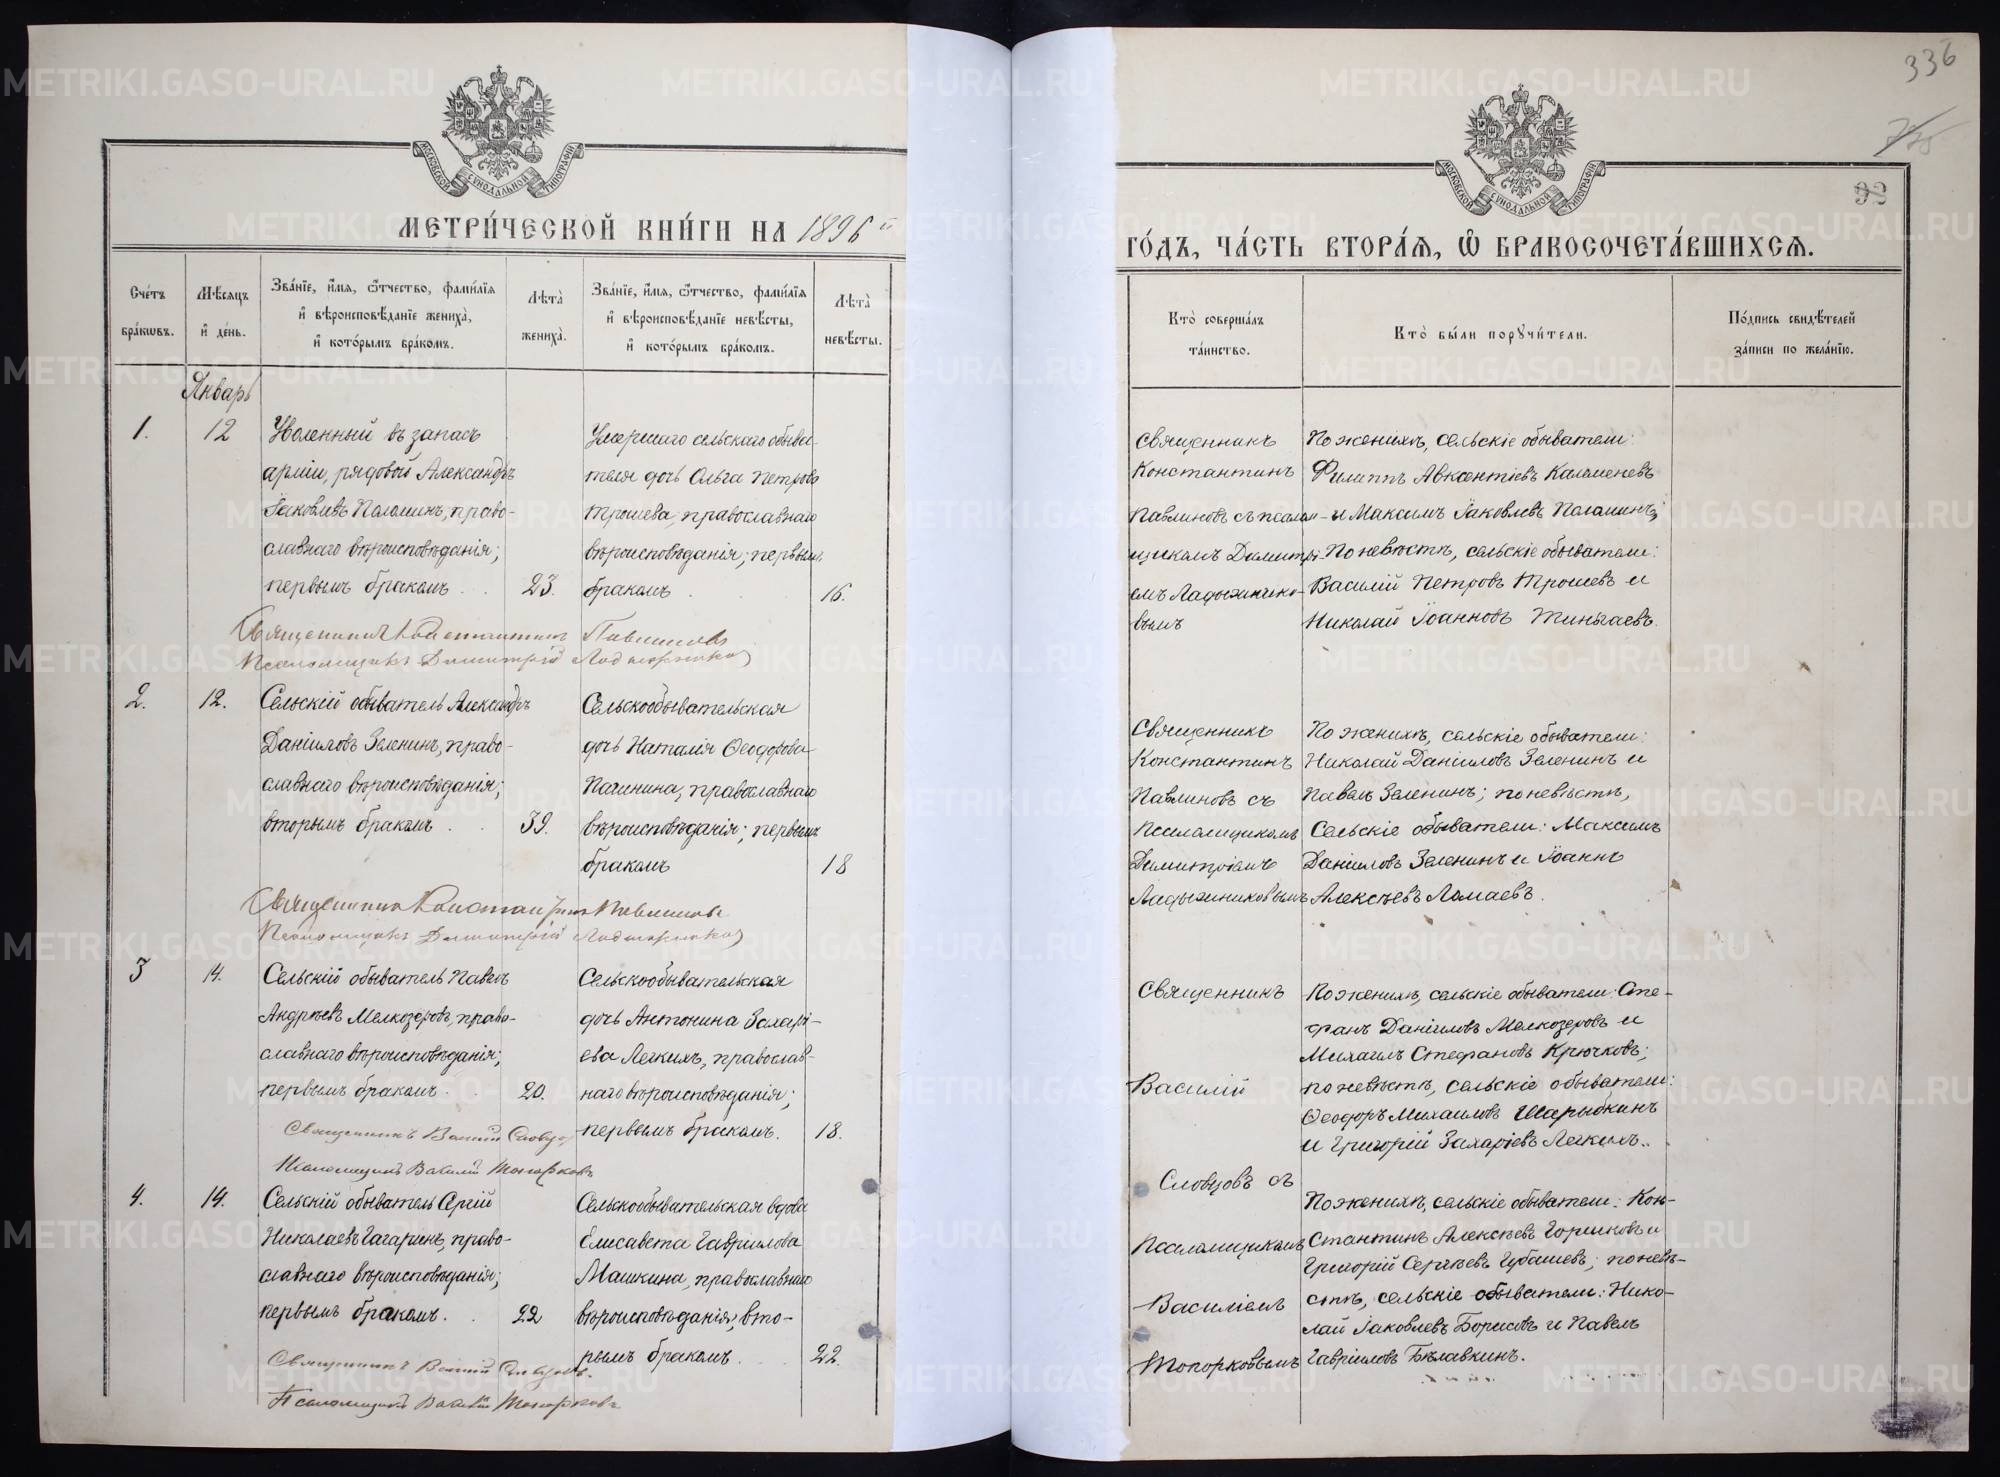 336
99
МОСКОВСКОЙ СѴНОДАЛЬНОЙ ТИПОГРАФІИ
МОСКОВСКОЙ СѴНОДАЛЬНОЙ ТИПОГРАФІИ
МЕТРИ́ЧЕСКОЙ КНИ́ГИ НА 1896й
ГО́ДЪ, ЧА́СТЬ ВТОРА́Я, Ѡ БРАКОСОЧЕТА́ВШИХСЯ.
Счетъ браковъ.
Мѣсяцъ и день.
Званіе, имя, отчество, фамилія и вѣроисповѣданіе жениха, и которымъ бракомъ.
Лѣта жениха.
Званіе, имя, отчество, фамилія и вѣроисповѣданіе невѣсты, и которымъ бракомъ.
Лѣта невѣсты.
Кто совершалъ таинство.
Кто были поручители.
Подпись свидѣтелей записи по желанію.
Январь
1.
12
Уволенный въ запасъ
арміи, рядовой Александръ
Іаковлевъ Паламинъ, право-
славнаго вѣроисповѣданія;
первымъ бракомъ
23.
Умершаго сельскаго обыва-
теля дочь Ольга Петрова
Трошева, православнаго
вѣроисповѣданія; первымъ
бракомъ
16.
Священникъ
Константинъ
Павлиновъ съ псалом-
щикомъ Димитрі-
емъ Ладыжнико-
вымъ
По женихѣ, сельскіе обыватели:
Филиппъ Авксентіевъ Каламеневъ
и Максимъ Іаковлевъ Паламинъ;
По невѣстѣ, сельскіе обыватели:
Василій Петровъ Трошевъ и
Николай Іоанновъ Тиньгаевъ.
Священникъ Константинъ Павлиновъ
Псаломщикъ Димитрій Ладыжниковъ
2.
12.
Сельскій обыватель Александръ
Даніиловъ Зеленинъ, право-
славнаго вѣроисповѣданія;
вторымъ бракомъ
39.
Сельскообывательская
дочь Наталія Ѳеодорова
Пачинина, православнаго
вѣроисповѣданія; первымъ
бракомъ
18
Священникъ
Константинъ
Павлиновъ съ
Псаломщикомъ
Димитріемъ
Ладыжниковымъ
По женихѣ, сельскіе обыватели:
Николай Даніиловъ Зеленинъ и
Павелъ Зеленинъ; по невѣстѣ,
Сельскіе обыватели: Максимъ
Даніиловъ Зеленинъ и Іоаннъ
Алексѣевъ Ламаевъ.
Священникъ Константинъ Павлиновъ
Псаломщикъ Димитрій Ладыжниковъ
3
14.
Сельскій обыватель Павелъ
Андреевъ Мелкозеровъ, право-
славнаго вѣроисповѣданія;
первымъ бракомъ
20.
Сельскообывательская
дочь Антонина Захарі-
ева Легкихъ, православ-
наго вѣроисповѣданія;
первымъ бракомъ.
18.
Священникъ
Василій
Словцовъ съ
Псаломщикомъ
Василіемъ
Топорковымъ
По женихѣ, сельскіе обыватели: Сте-
фанъ Даніиловъ Мелкозеровъ и
Михаилъ Стефановъ Крючковъ;
по невѣстѣ, сельскіе обыватели:
Ѳеодоръ Михаиловъ Шарыбкинъ
и Григорій Захаріевъ Легкихъ.
Священникъ Василій Словцовъ
Псаломщикъ Василій Топорковъ
4.
14.
Сельскій обыватель Сергій
Николаевъ Гагаринъ, право-
славнаго вѣроисповѣданія;
первымъ бракомъ.
22
Сельскообывательская вдова
Елисавета Гавріилова
Машкина, православнаго
вѣроисповѣданія, вто-
рымъ бракомъ
22.
По женихѣ, сельскіе обыватели: Кон-
стантинъ Алексѣевъ Горшковъ и
Григорій Сергѣевъ Губашевъ; по невѣ-
стѣ, сельскіе обыватели: Нико-
лай Іаковлевъ Борисовъ и Павелъ
Гавріиловъ Бѣлавкинъ.
Священникъ Василій Словцовъ.
Псаломщикъ Василій Топорковъ
METRIKI.GASO-URAL.RU